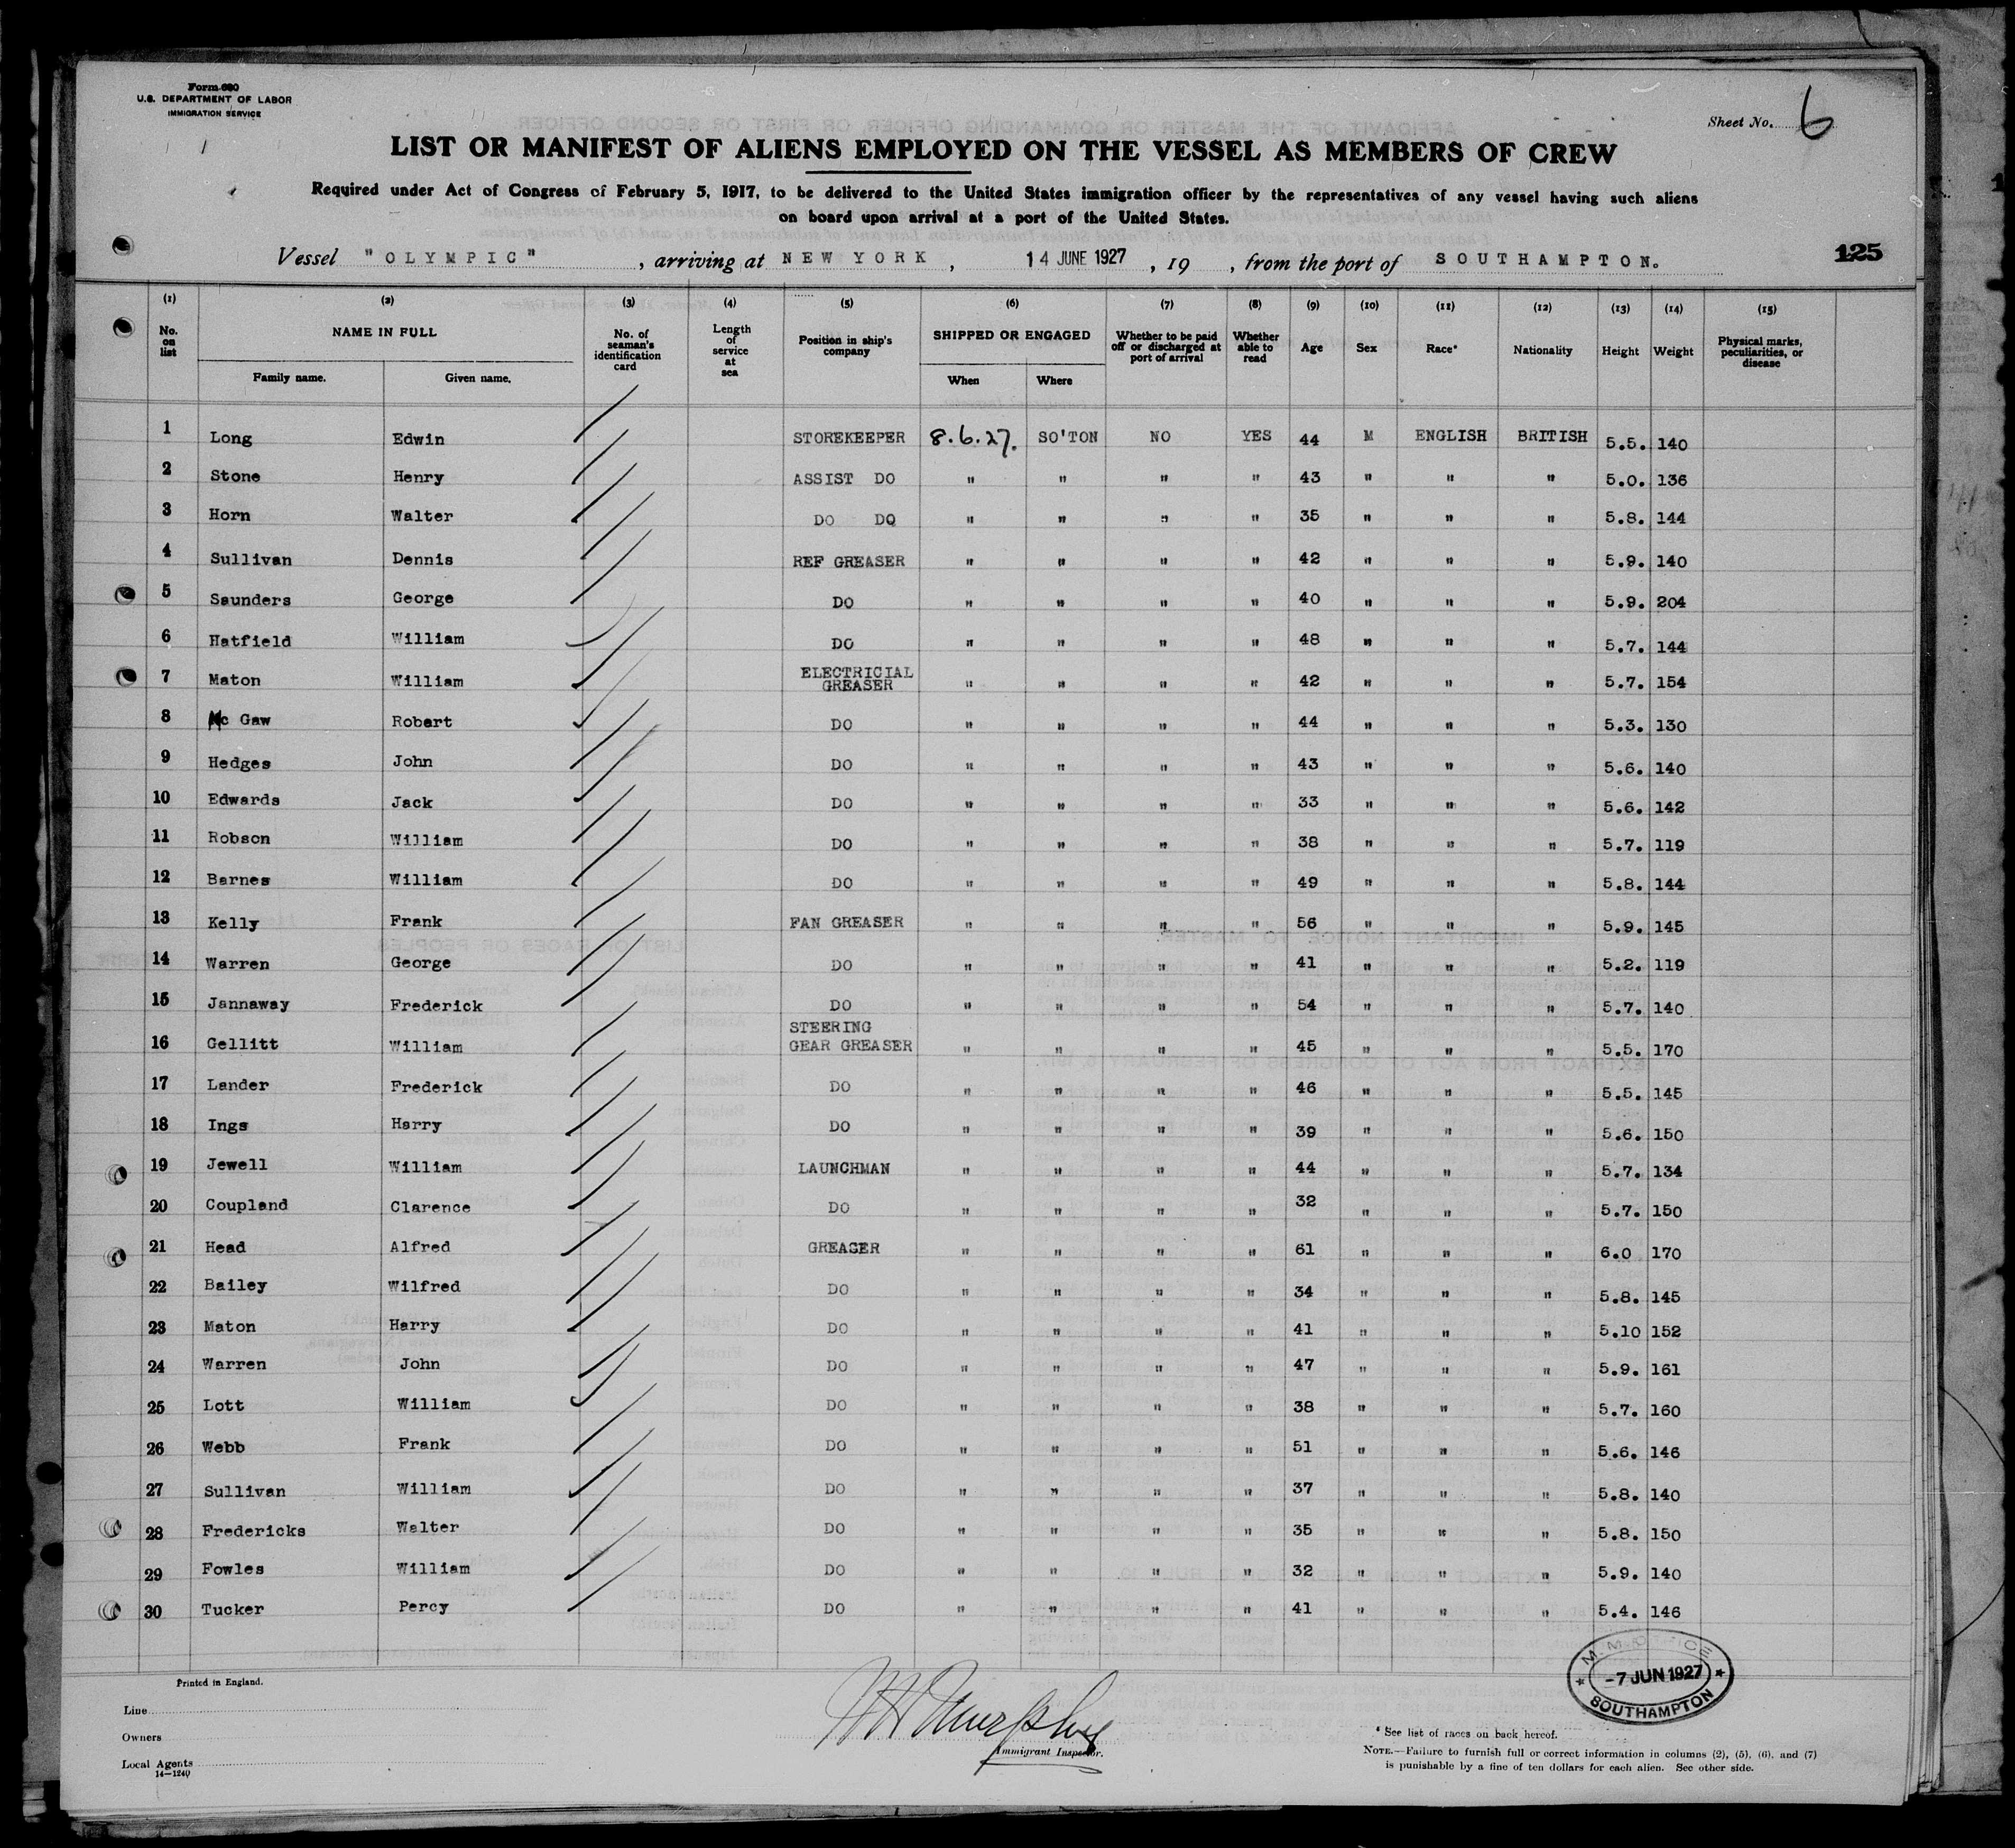 Form 680
U.S. DEPARTMENT OF LABOR
IMMIGRATION SERVICE
Sheet No. 6
LIST OR MANIFEST OF ALIENS EMPLOYED ON THE VESSEL AS MEMBERS OF CREW
Required under Act of Congress of February 5, 1917, to be delivered to the United States immigration officer by the representatives of any vessel having such aliens
on board upon arrival at a port of the United States.
Vessel "OLYMPIC", arriving at NEW YORK, 14 JUNE 1927, 19 , from the port of SOUTHAMPTON. 125
(1) (2) (3) (4) (5) (6) (7) (8) (9) (10) (11) (12) (13) (14) (15)
No. on list NAME IN FULL Family name. Given name. No. of seaman's identification card Length of service at sea Position in ship's company SHIPPED OR ENGAGED When Where Whether to be paid off or discharged at port of arrival Whether able to read Age Sex Race* Nationality Height Weight Physical marks, peculiarities, or disease
1 Long Edwin STOREKEEPER 8.6.27. SO'TON NO YES 44 M ENGLISH BRITISH 5.5. 140
2 Stone Henry ASSIST DO " " " " 43 " " " 5.0. 136
3 Horn Walter DO DO " " " " 35 " " " 5.8. 144
4 Sullivan Dennis REF GREASER " " " " 42 " " " 5.9. 140
5 Saunders George DO " " " " 40 " " " 5.9. 204
6 Hatfield William DO " " " " 48 " " " 5.7. 144
7 Maton William ELECTRICIAL GREASER " " " " 42 " " " 5.7. 154
8 Mc Gaw Robert DO " " " " 44 " " " 5.3. 130
9 Hedges John DO " " " " 43 " " " 5.6. 140
10 Edwards Jack DO " " " " 33 " " " 5.6. 142
11 Robson William DO " " " " 38 " " " 5.7. 119
12 Barnes William DO " " " " 49 " " " 5.8. 144
13 Kelly Frank FAN GREASER " " " " 56 " " " 5.9. 145
14 Warren George DO " " " " 41 " " " 5.2. 119
15 Jannaway Frederick DO " " " " 54 " " " 5.7. 140
16 Gellitt William STEERING GEAR GREASER " " " " 45 " " " 5.5. 170
17 Lander Frederick DO " " " " 46 " " " 5.5. 145
18 Ings Harry DO " " " " 39 " " " 5.6. 150
19 Jewell William LAUNCHMAN " " " " 44 " " " 5.7. 134
20 Coupland Clarence DO " " " " 32 " " " 5.7. 150
21 Head Alfred GREASER " " " " 61 " " " 6.0 170
22 Bailey Wilfred DO " " " " 34 " " " 5.8. 145
23 Maton Harry DO " " " " 41 " " " 5.10 152
24 Warren John DO " " " " 47 " " " 5.9. 161
25 Lott William DO " " " " 38 " " " 5.7. 160
26 Webb Frank DO " " " " 51 " " " 5.6. 146
27 Sullivan William DO " " " " 37 " " " 5.8. 140
28 Fredericks Walter DO " " " " 35 " " " 5.8. 150
29 Fowles William DO " " " " 32 " " " 5.9. 140
30 Tucker Percy DO " " " " 41 " " " 5.4. 146
Printed in England.
Line
Owners
Local Agents
14—1240
Murphy
Immigrant Inspector.
M.M. OFFICE
-7 JUN 1927
SOUTHAMPTON
* See list of races on back hereof.
NOTE.—Failure to furnish full or correct information in columns (2), (5), (6), and (7)
is punishable by a fine of ten dollars for each alien. See other side.